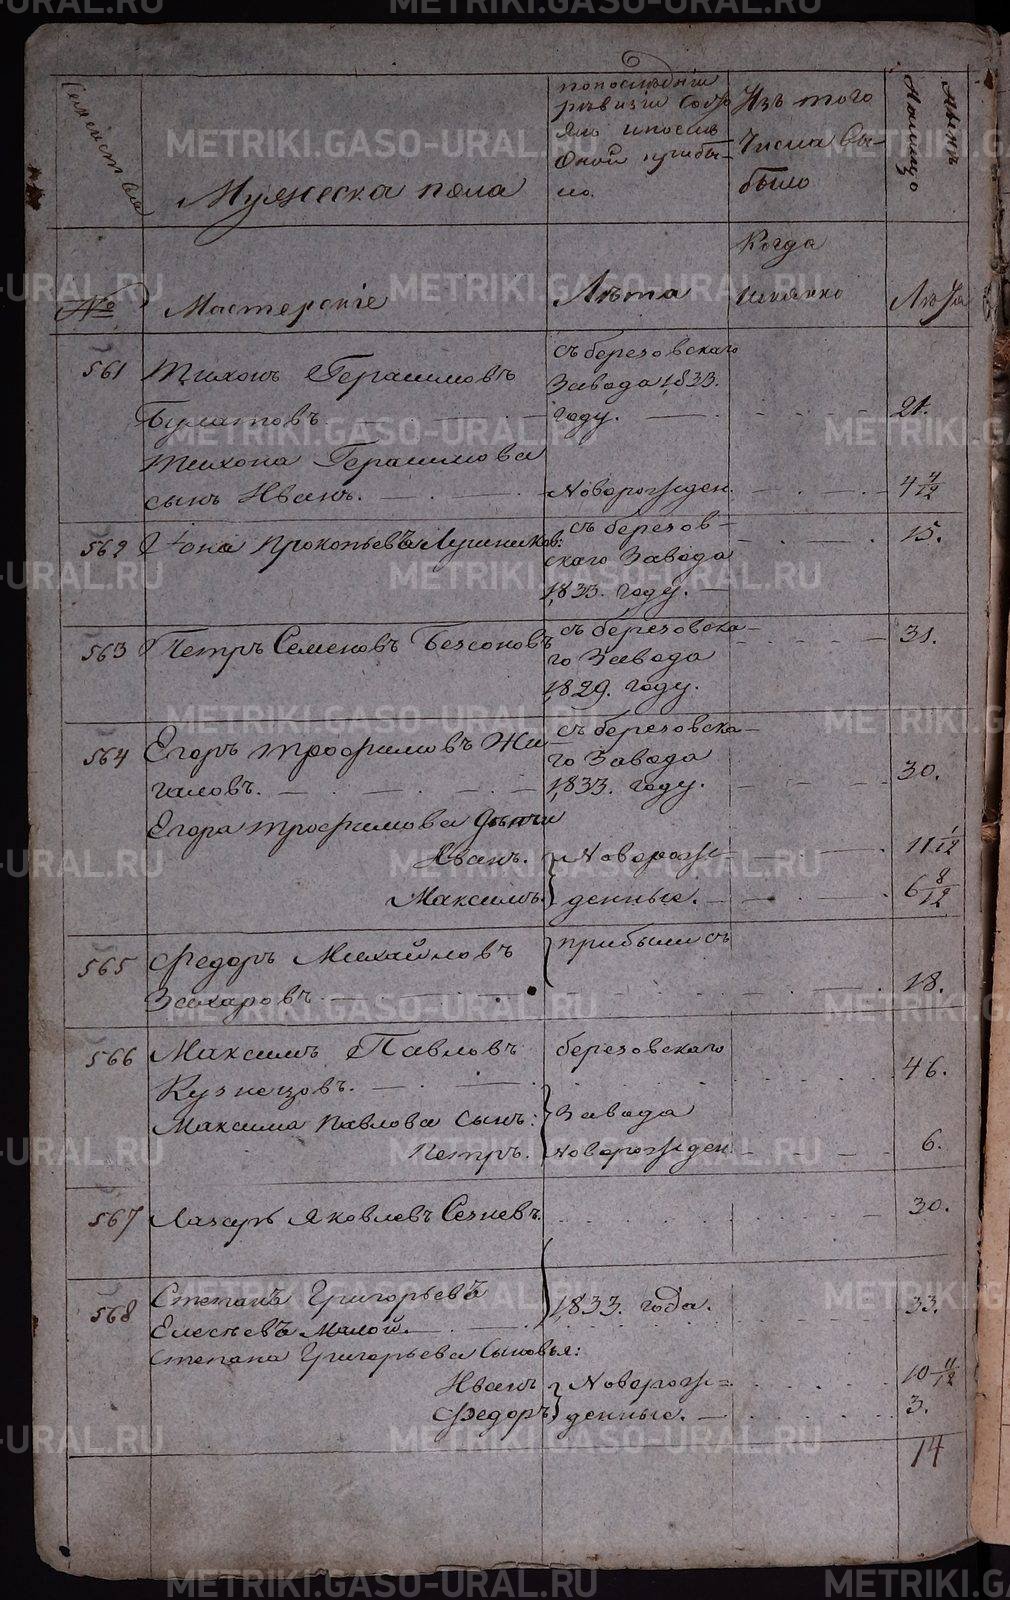 METRIKI.GASO-URAL.RU
Семейства
Мужеска пола
по последней
ревизіи состо
яло и после
оной прибы-
ло.
Изъ того
числа вы-
было
Ныне
на лицо
№
Мастерскіе
Лѣта
Когда
именно
Лѣта
561 Тихонъ Герасимовъ
Булатовъ.
съ березовскаго
Завода 1833.
году.
21.
Тихона Герасимова
сынъ Иванъ.
Новорожден.
4 4/12
562 Іона Прокопьевъ Лушников:
съ березов-
скаго Завода
1833. году.
15.
563 Петръ Семеновъ Безсоновъ
съ березовска-
го Завода
1829. году.
31.
564 Егоръ Трофимовъ Жи-
галовъ.
съ березовска-
го Завода
1833. году.
30.
Егора Трофимова дѣти
Иванъ. Новорож- 11 1/12
Максимъ. денные. 6 8/12
565 Федоръ Михайловъ
Захаровъ
прибыли съ
18.
566 Максимъ Павловъ
Кузнецовъ.
березовскаго
46.
Максима Павлова сынъ:
Завода
Петръ. Новорожден. 6.
567 Лазарь Яковлевъ Сезневъ. 30.
568 Степанъ Григорьевъ
Елесѣевъ Малой.
1833. года.
33.
Степана Григорьева сыновья:
Иванъ Новорож- 10 11/12
Федоръ денные. 3.
14